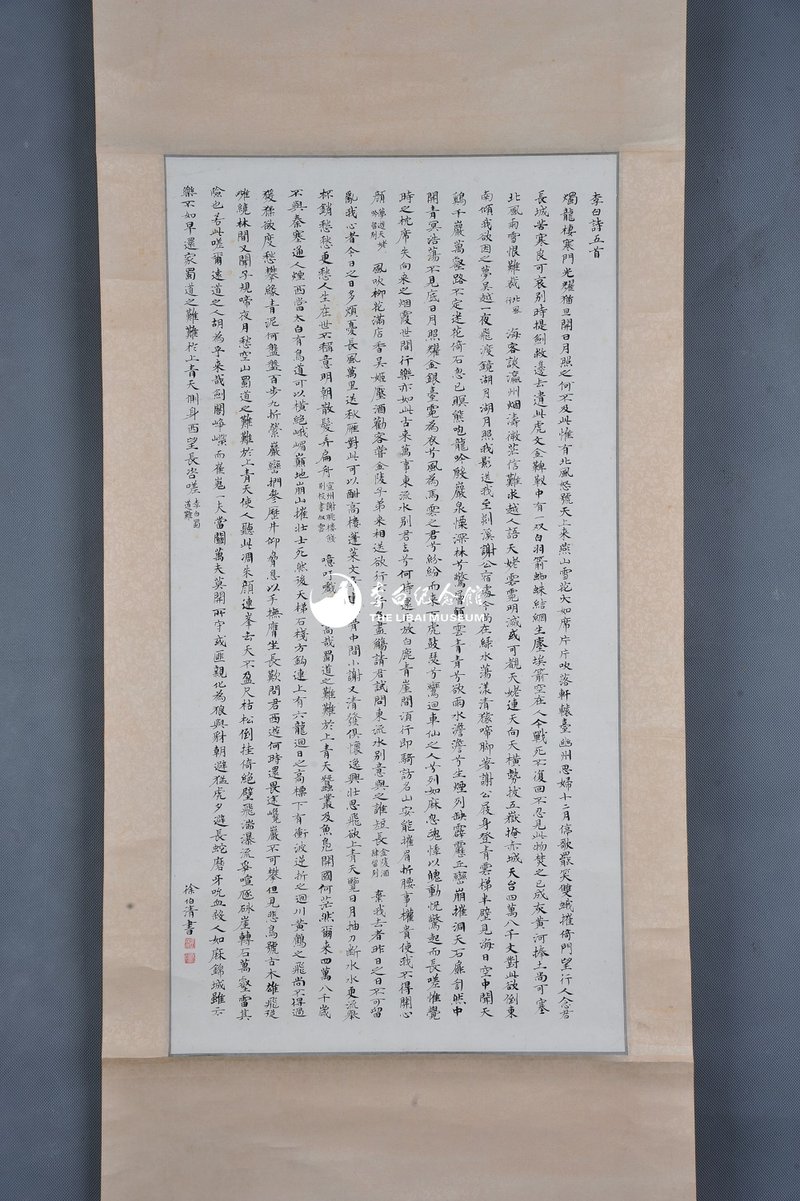 李白詩五首
燭龍棲寒門光耀猶旦開日月照之何不及此惟有北風怒號天上來燕山雪花大如席片片吹落軒轅臺幽州思婦十二月停歌罷笑雙蛾摧倚門望行人念君
長城苦寒良可哀別時提劍救邊去遺此虎文金鞞靫中有一双白羽箭蜘蛛結網生塵埃箭空在人今戰死不復回不忍見此物焚之已成灰黃河捧土尚可塞
北風雨雪恨難裁 北風 海客談瀛州烟濤微茫信難求越人語天姥雲霓明滅或可覩天姥連天向天橫勢拔五嶽掩赤城天台四萬八千丈對此欲倒東
南傾我欲因之夢吳越一夜飛渡鏡湖月湖月照我影送我至剡溪謝公宿處今尚在綠水蕩漾清猿啼腳著謝公屐身登青雲梯半壁見海日空中聞天
鷄千巖萬壑路不定迷花倚石忽已暝熊咆龍吟殷巖泉慄深林兮驚層巔雲青青兮欲雨水澹澹兮生煙列缺霹靂丘巒崩摧洞天石扉訇然中
開青冥浩蕩不見底日月照耀金銀臺霓為衣兮風為馬雲之君兮紛紛而來下虎鼓瑟兮鸞迴車仙之人兮列如麻忽魂悸以魄動怳驚起而長嗟惟覺
時之枕席失向來之烟霞世間行樂亦如此古來萬事東流水別君去兮何時還且放白鹿青崖間須行即騎訪名山安能摧眉折腰事權貴使我不得開心
顏 夢遊天姥吟留別 風吹柳花滿店香吳姬壓酒勸客嘗金陵子弟來相送欲行不盡觴請君試問東流水別意與之誰短長 金陵酒肆留別 棄我去者昨日之日不可留
亂我心者今日之日多煩憂長風萬里送秋雁對此可以酣高樓蓬萊文骨中間小謝又清發俱懷逸興壯思飛欲上青天覽日月抽刀斷水水更流舉
杯銷愁愁更愁人生在世不稱意明朝散髮弄扁舟 宣州謝朓樓餞別校書叔雲 噫吁嚱高哉蜀道之難難於上青天蠶叢及魚鳧開國何茫然爾來四萬八千歲
不與秦塞通人煙西當太白有鳥道可以橫絕峨嵋巔地崩山摧壯士死然後天梯石棧方鉤連上有六龍迴日之高標下有衝波逆折之迴川黃鶴之飛尚不得過
猨猱欲度愁攀緣青泥何盤盤百步九折縈巖巒捫參歷井仰脅息以手撫膺坐長歎問君西遊何時還畏途巉巖不可攀但見悲鳥號古木雄飛從
雌繞林間又聞子規啼夜月愁空山蜀道之難難於上青天使人聽此凋朱顏連峯去天不盈尺枯松倒挂倚絕壁飛湍瀑流爭喧豗砯崖轉石萬壑雷其
險也若此嗟爾遠道之人胡為乎來哉劍閣崢嶸而崔嵬一夫當關萬夫莫開所守或匪親化為狼與豺朝避猛虎夕避長蛇磨牙吮血殺人如麻錦城雖云
樂不如早還家蜀道之難難於上青天側身西望長咨嗟 李白蜀道難
徐伯清書
李白纪念馆
THE LIBAI MUSEUM